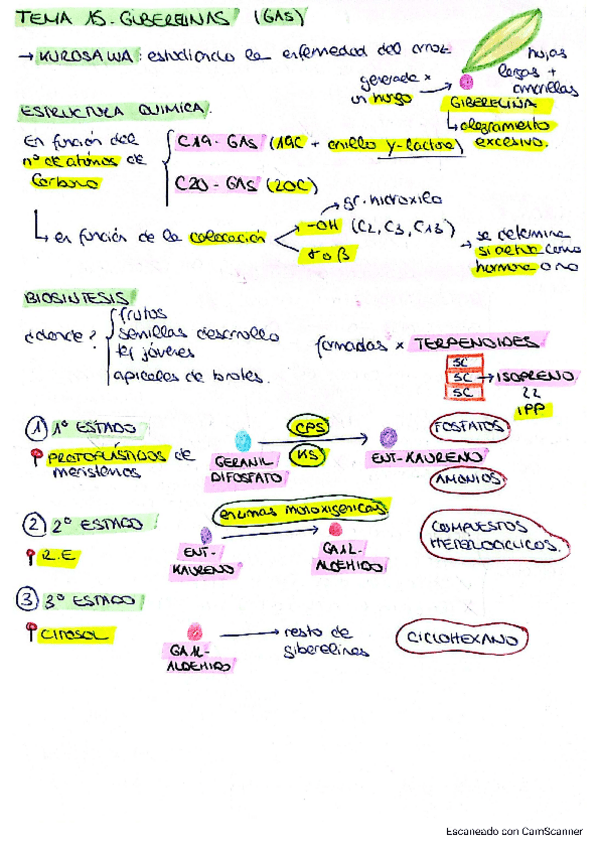 TEMA 15. GIBERELINAS (GAS)
→ KUROSAWA: estudiando la enfermedad del arroz
hojas
largas +
amarillas
generada x
un hongo
GIBERELINA
↳ alargamiento
excesivo.
ESTRUCTURA QUIMICA.
En función del
nº de átomos de
Carbono
C19-GAS (19C + anillo γ-lactona)
C20-GAS (20C)
↳ en función de la colocación
gr. hidroxilo
-OH (C2, C3, C13)
α o β
→ se determina
si actua como
hormona o no
BIOSINTESIS
¿donde?
frutos
semillas desarrollo
tej jóvenes
apicales de brotes.
formadas x TERPENOIDES
5C
5C → ISOPRENO
5C
IPP
① 1º ESTADO
PROTOPLÁSTIDOS de
meristemos
GERANIL
DIFOSFATO
CPS
KS
ENT-KAURENO
FOSFATOS
AMONIOS
② 2º ESTADO
R.E
enzimas monoxigenicas
ENT-
KAURENO
GA12-
ALDEHIDO
COMPUESTOS
HETEROCICLICOS.
③ 3º ESTADO
CITOSOL
GA12-
ALDEHIDO
→ resto de
giberelinas
CICLOHEXANO
Escaneado con CamScanner